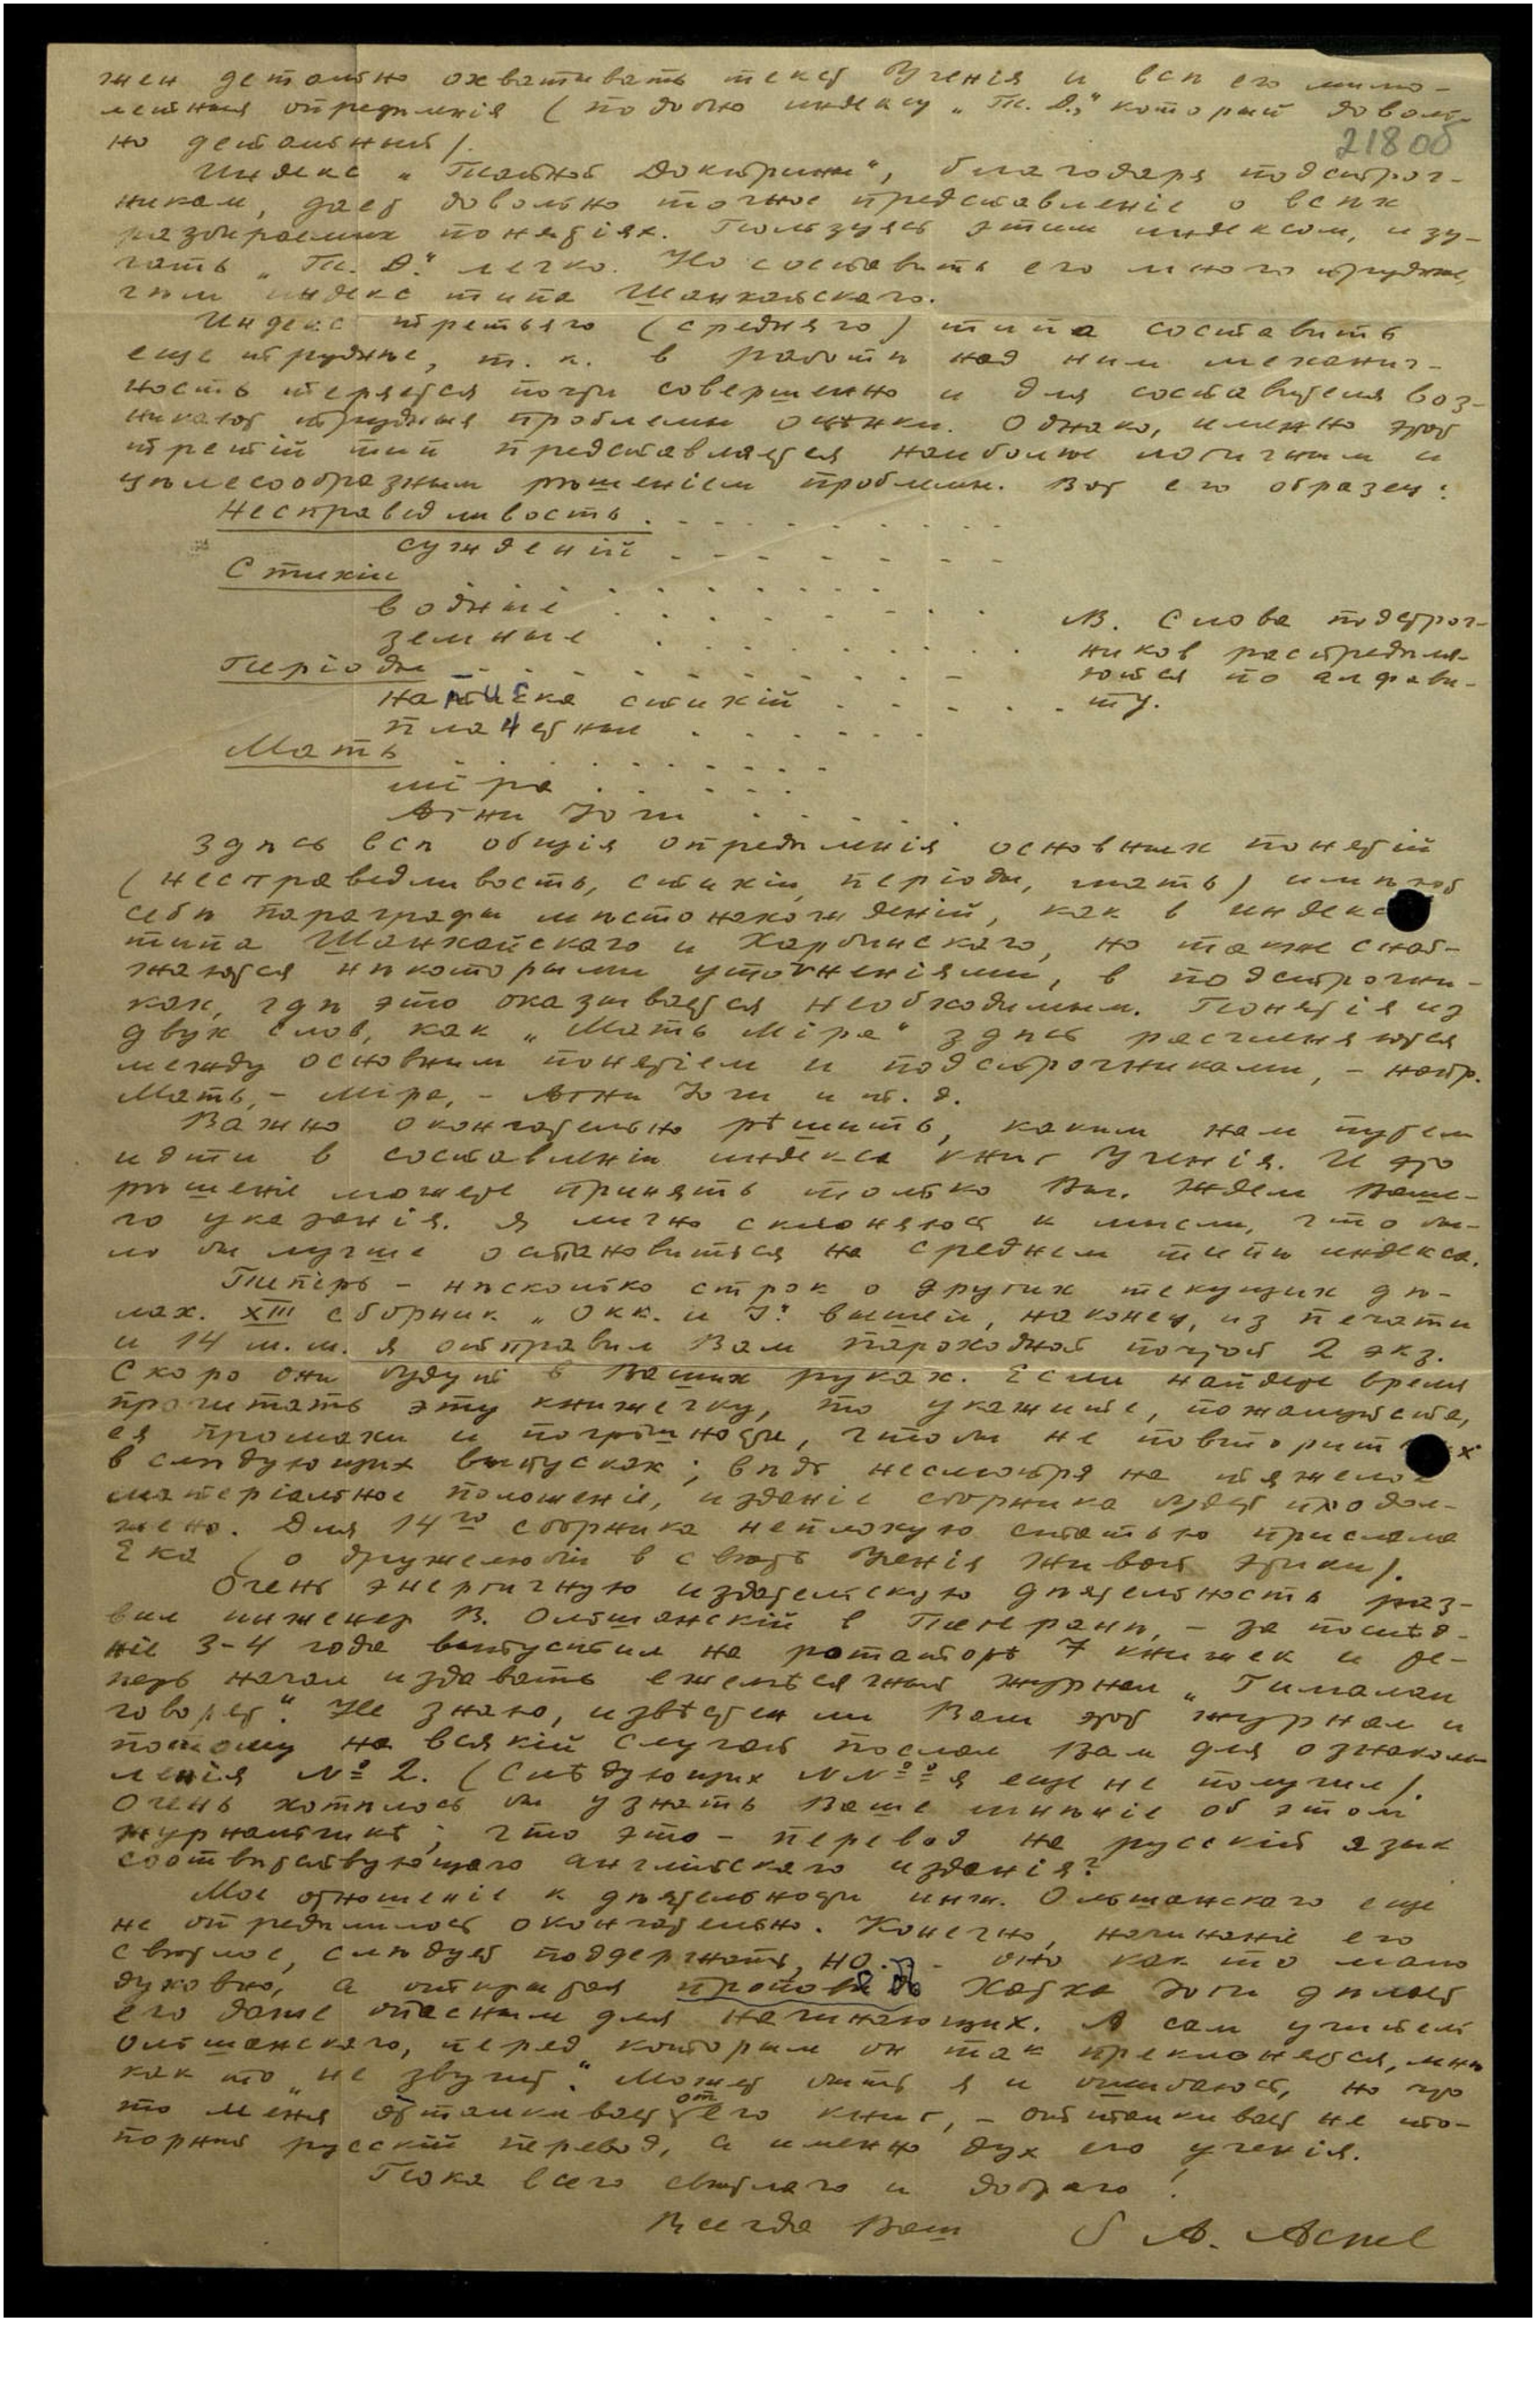 жен детально охватывать текст Ученія и всѣ его мимо-
летныя опредѣленія (подобно индексу „Т. Д.", который доволь-
но детальный).
218 об
Индекс „Тайной Доктрины", благодаря подстроч-
никам, дает довольно точное представленіе о всѣх
разбираемых понятіях. Пользуясь этим индексом, изу-
чать „Т. Д." легко. Но составить его много труднѣе,
чѣм индекс типа Шанхайскаго.
Индекс третьяго (средняго) типа составить
еще труднѣе, т. к. в работѣ над ним механич-
ность теряется почти совершенно и для составителя воз-
никают трудныя проблемы оцѣнки. Однако, именно этот
третій тип представляется наиболѣе логичным и
цѣлесообразным рѣшеніем проблемы. Вот его образец:
Несправедливость . . . . . . . . .
сужденій . . . . . . .
Стихіи . . . . . . .
водные . . . . . . .
земные . . . . . . . .
NB. Слова подстроч-
ников распредѣля-
ются по алфави-
ту.
Періоды . . . . . . . . .
натиска стихій . . . . .
планеты . . . . . .
Мать . . . . . . .
міра . . . . .
Агни Йоги . . . . .
Здѣсь всѣ общія опредѣленія основных понятій
(несправедливость, стихіи, періоды, мать) имѣют
себѣ параграфы мѣстонахожденій, как в индекс
типа Шанхайскаго и Харбинскаго, но также снаб-
жаются нѣкоторыми уточненіями, в подстрочни-
ках, гдѣ это оказывается необходимым. Понятія из
двух слов, как „Мать Міра" здѣсь расчленяются
между основным понятіем и подстрочниками, – напр.
Мать, – Міра, – Агни Йоги и т. д.
Важно окончательно рѣшить, каким нам путем
идти в составленіи индекса книг Ученія. И это
рѣшеніе можете принять только Вы. Ждем Ваше-
го указанія. Я лично склоняюсь к мысли, что бы-
ло бы лучше остановиться на среднем типѣ индекса.
Теперь – нѣсколько строк о других текущих дѣ-
лах. XIII сборник „Окк. и Й." вышел, наконец, из печати
и 14 т. м. я отправил Вам пароходной почтой 2 экз.
Скоро они будут в Ваших руках. Если найдете время
прочитать эту книжечку, то укажите, пожалуйста,
ея промахи и погрѣшности, чтобы не повторить их
в слѣдующих выпусках; вѣдь несмотря на тяжелое
матеріальное положеніе, изданіе сборника будет продол-
жено. Для 14го сборника неплохую статью прислала
Ека (о дружелюбіи в свѣтѣ Ученія Живой Этики).
Очень энергичную издательскую дѣятельность раз-
вил инженер В. Ольшанскій в Тегеранѣ, – за послѣд-
ніе 3-4 года выпустил на ротаторѣ 7 книжек и те-
перь начал издавать ежемѣсячный журнал „Гималаи
говорят". Не знаю, извѣстен ли Вам этот журнал и
потому на всякій случай послал Вам для ознаком-
ленія № 2. (Слѣдующих №№ я еще не получил).
Очень хотѣлось бы узнать Ваше мнѣніе об этом
журнальчикѣ; что это – перевод на русскій язык
соотвѣтствующаго англійскаго изданія?
Мое отношеніе к дѣятельности инж. Ольшанскаго еще
не опредѣлилось окончательно. Конечно, начинаніе его
свѣтлое, слѣдует поддержать, но... – оно как то мало
духовно, а открытая проповѣдь Хатха Йоги дѣлает
его даже опасным для начинающих. А сам учитель
Ольшанскаго, перед которым он так преклоняется, мнѣ
как то „не звучит". Может быть я и ошибаюсь, но что
то меня отталкивает от его книг, – отталкивает не то-
порный русскій перевод, а именно дух его ученія.
Пока всего свѣтлаго и добраго!
Всегда Ваш